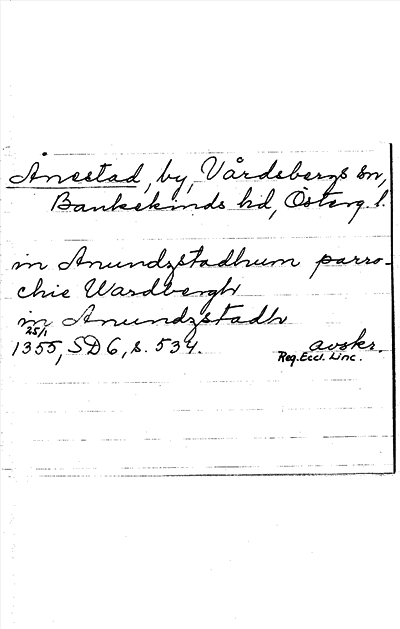 Ånestad, by, Vårdsbergs sn,
Bankekinds hd, Österg. l.
in Anundzstadhum parro-
chie Wardbergh
in Anundzstadh
25/1
1355, SD 6, s. 534. avskr.
Reg. Eccl. Linc.